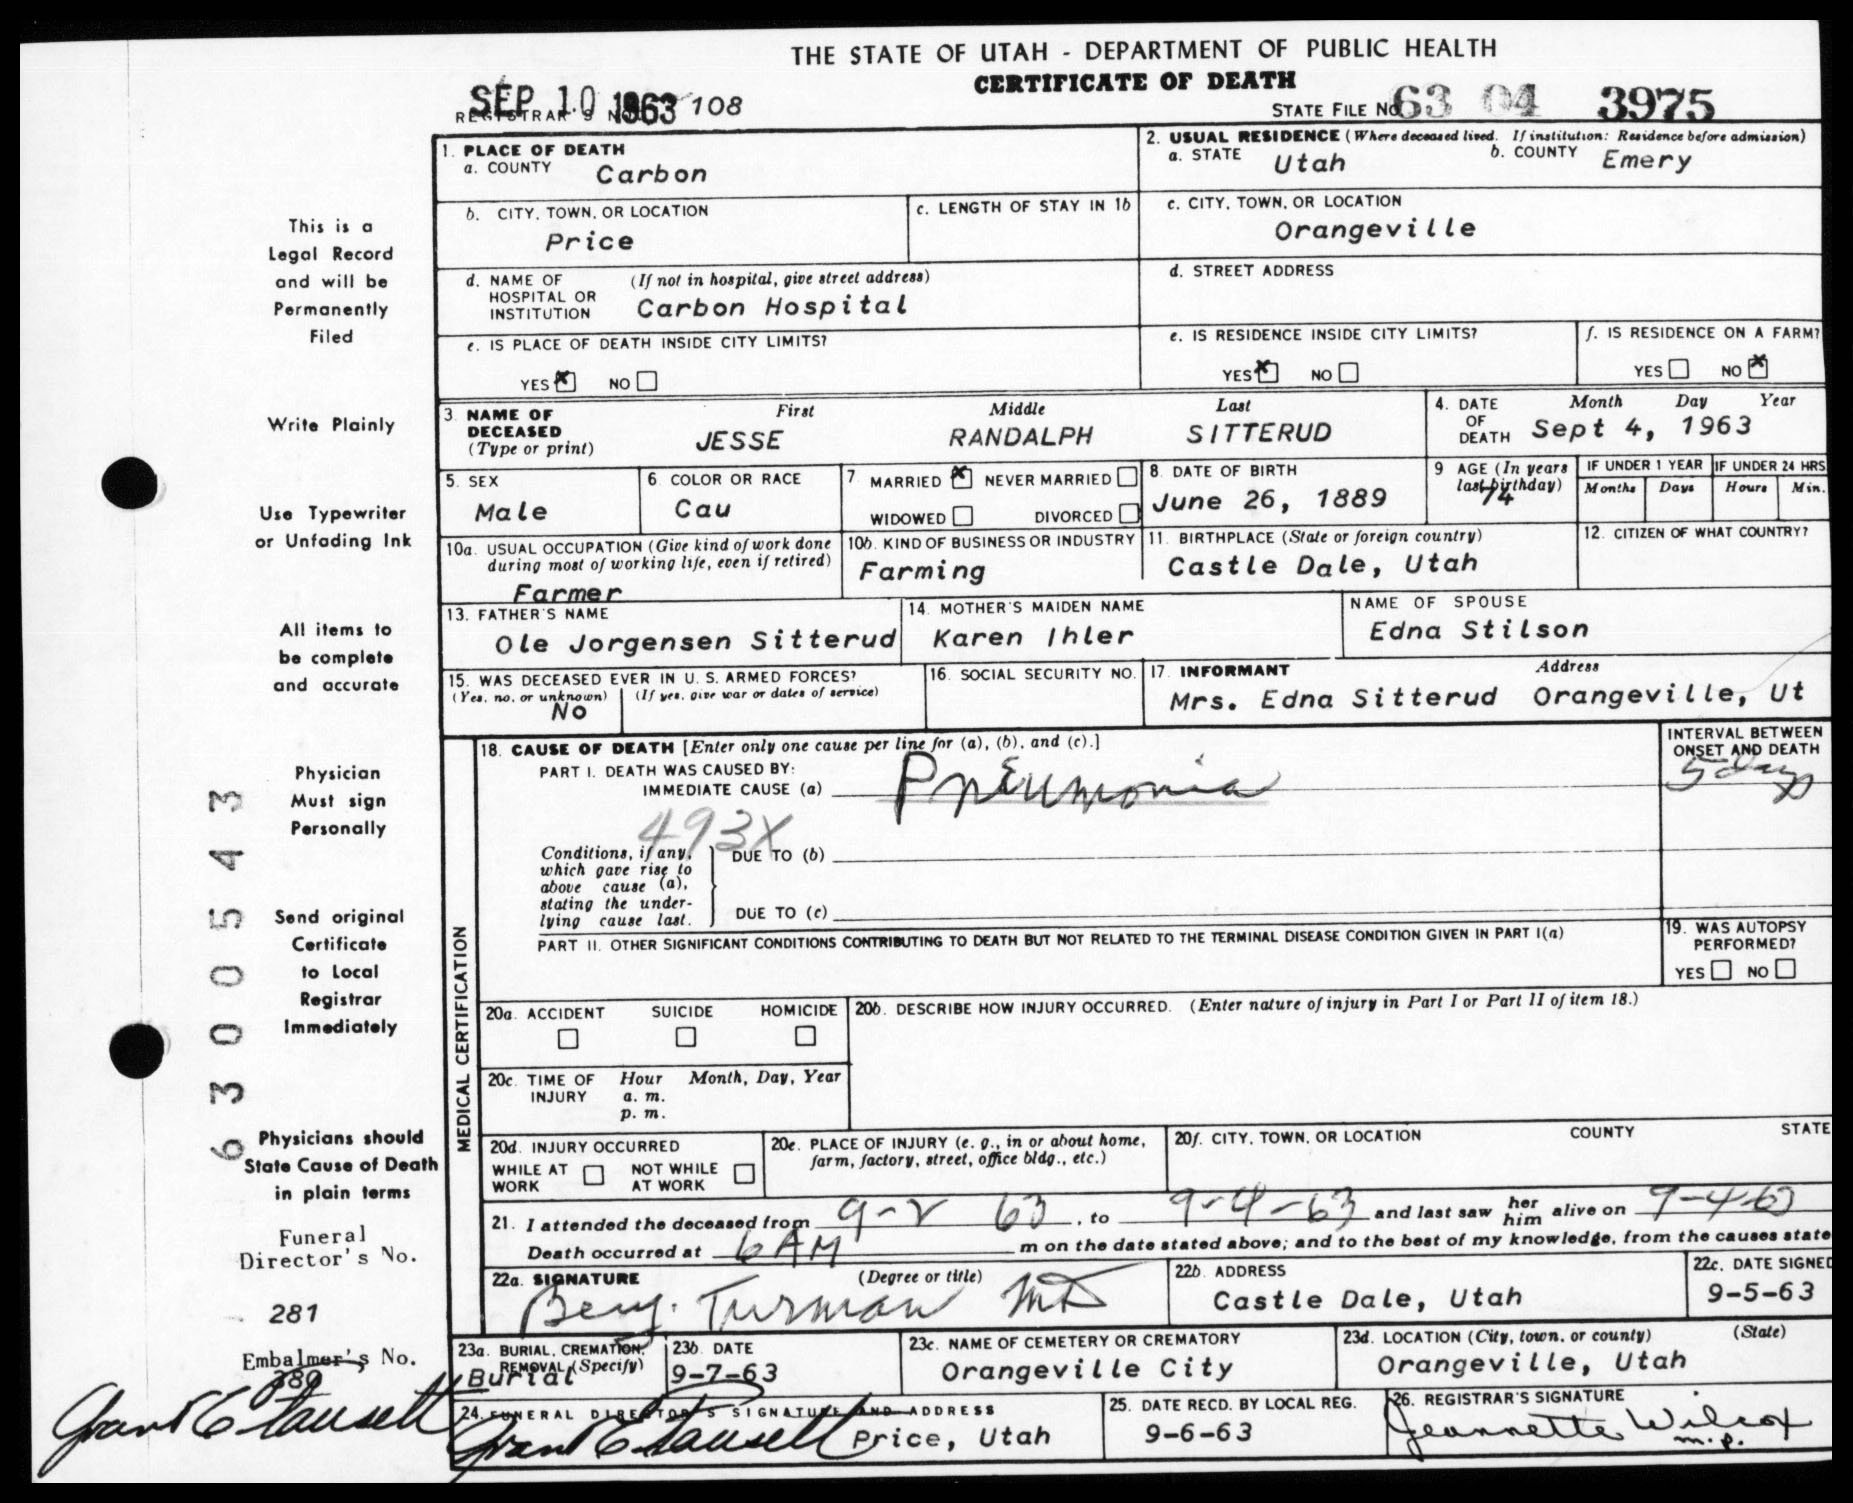 THE STATE OF UTAH - DEPARTMENT OF PUBLIC HEALTH
CERTIFICATE OF DEATH
SEP 10 1963
REGISTRAR'S NO. 108
STATE FILE NO. 63 04 3975
1. PLACE OF DEATH
a. COUNTY Carbon
2. USUAL RESIDENCE (Where deceased lived. If institution: Residence before admission)
a. STATE Utah b. COUNTY Emery
b. CITY, TOWN, OR LOCATION
Price
c. LENGTH OF STAY IN 1b
c. CITY, TOWN, OR LOCATION
Orangeville
d. NAME OF HOSPITAL OR INSTITUTION (If not in hospital, give street address)
Carbon Hospital
d. STREET ADDRESS
e. IS PLACE OF DEATH INSIDE CITY LIMITS?
YES x NO
e. IS RESIDENCE INSIDE CITY LIMITS?
YES x NO
f. IS RESIDENCE ON A FARM?
YES NO x
3. NAME OF DECEASED (Type or print)
First Middle Last
JESSE RANDALPH SITTERUD
4. DATE OF DEATH Month Day Year
Sept 4, 1963
5. SEX
Male
6. COLOR OR RACE
Cau
7. MARRIED x NEVER MARRIED
WIDOWED DIVORCED
8. DATE OF BIRTH
June 26, 1889
9 AGE (In years last birthday)
74
IF UNDER 1 YEAR
Months Days
IF UNDER 24 HRS
Hours Min.
10a. USUAL OCCUPATION (Give kind of work done during most of working life, even if retired)
Farmer
10b. KIND OF BUSINESS OR INDUSTRY
Farming
11. BIRTHPLACE (State or foreign country)
Castle Dale, Utah
12. CITIZEN OF WHAT COUNTRY?
13. FATHER'S NAME
Ole Jorgensen Sitterud
14. MOTHER'S MAIDEN NAME
Karen Ihler
NAME OF SPOUSE
Edna Stilson
15. WAS DECEASED EVER IN U. S. ARMED FORCES?
(Yes, no, or unknown) (If yes, give war or dates of service)
No
16. SOCIAL SECURITY NO.
17. INFORMANT Address
Mrs. Edna Sitterud Orangeville, Ut
MEDICAL CERTIFICATION
18. CAUSE OF DEATH [Enter only one cause per line for (a), (b), and (c).]
PART I. DEATH WAS CAUSED BY:
IMMEDIATE CAUSE (a) Pneumonia
INTERVAL BETWEEN ONSET AND DEATH
5 days
493X
Conditions, if any, which gave rise to above cause (a), stating the underlying cause last.
DUE TO (b)
DUE TO (c)
PART II. OTHER SIGNIFICANT CONDITIONS CONTRIBUTING TO DEATH BUT NOT RELATED TO THE TERMINAL DISEASE CONDITION GIVEN IN PART I(a)
19. WAS AUTOPSY PERFORMED?
YES NO
20a. ACCIDENT SUICIDE HOMICIDE
20b. DESCRIBE HOW INJURY OCCURRED. (Enter nature of injury in Part I or Part II of item 18.)
20c. TIME OF INJURY Hour Month, Day, Year
a. m.
p. m.
20d. INJURY OCCURRED
WHILE AT WORK NOT WHILE AT WORK
20e. PLACE OF INJURY (e. g., in or about home, farm, factory, street, office bldg., etc.)
20f. CITY, TOWN, OR LOCATION COUNTY STATE
21. I attended the deceased from 9-2 63, to 9-4-63 and last saw her him alive on 9-4-63
Death occurred at 6 AM m on the date stated above; and to the best of my knowledge, from the causes state
22a. SIGNATURE (Degree or title)
Benj. Turman MD
22b. ADDRESS
Castle Dale, Utah
22c. DATE SIGNED
9-5-63
23a. BURIAL, CREMATION, REMOVAL (Specify)
Burial
23b. DATE
9-7-63
23c. NAME OF CEMETERY OR CREMATORY
Orangeville City
23d. LOCATION (City, town, or county) (State)
Orangeville, Utah
24. FUNERAL DIRECTOR'S SIGNATURE AND ADDRESS
Grant C Fausett Price, Utah
25. DATE RECD. BY LOCAL REG.
9-6-63
26. REGISTRAR'S SIGNATURE
Jeannette Wilcox
m.p.
This is a
Legal Record
and will be
Permanently
Filed
Write Plainly
Use Typewriter
or Unfading Ink
All items to
be complete
and accurate
Physician
Must sign
Personally
Send original
Certificate
to Local
Registrar
Immediately
Physicians should
State Cause of Death
in plain terms
Funeral
Director's No.
281
Embalmer's No.
380
Grant C Fausett
6300543